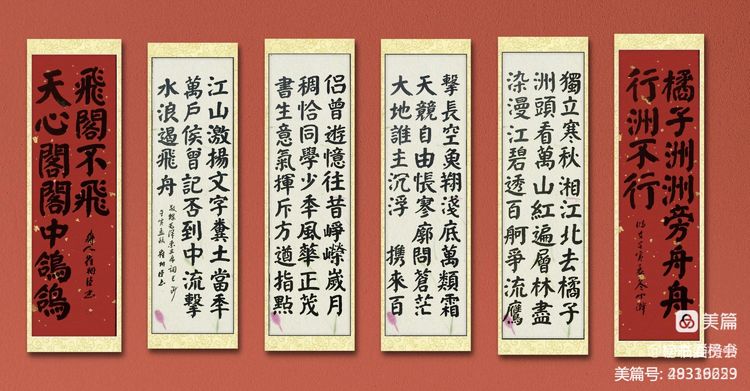 橘子洲洲旁舟舟
行洲不行
獨立寒秋湘江北去橘子
洲頭看萬山紅遍層林盡
染漫江碧透百舸爭流鷹
擊長空魚翔淺底萬類霜
天競自由悵寥廓問蒼茫
大地誰主沉浮 攜來百
侣曾遊憶往昔崢嶸歲月
稠恰同學少年風華正茂
書生意氣揮斥方遒指點
江山激揚文字糞土當年
萬戶侯曾記否到中流擊
水浪遏飛舟
天心閣閣中鴿鴿
飛閣不飛
美篇
美篇号: